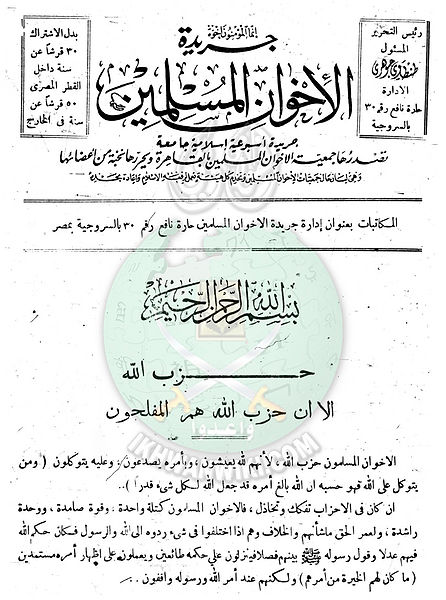 إنما المؤمنون إخوة
جريدة
الإخوان المسلمين
رئيس التحرير
المسئول
طنطاوي جوهري
الإدارة
حارة نافع رقم ٣٠
بالسروجية
بدل الاشتراك
٣٠ قرشاً عن
سنة داخل
القطر المصرى
٥٠ قرشاً عن
سنة فى الخارج
جريدة أسبوعية إسلامية جامعة
تصدرها جمعيت الإخوان المسلمين بالقاهرة ويحررها نخبة من أعضائها
المكاتبات بعنوان إدارة جريدة الاخوان المسلمين حارة نافع رقم ٣٠ بالسروجية بمصر
بسم الله الرحمن الرحيم
حزب الله
الا ان حزب الله هم المفلحون
الاخوان المسلمون حزب الله ، لأنهم لله يعيشون ، وبأمره يصدعون ، وعليه يتوكلون ( ومن
يتوكل على الله فهو حسبه ان الله بالغ أمره قد جعل الله لكل شىء قدراً ) ..
ان كان فى الاحزاب تفكك وتخاذل ، فالاخوان المسلمون كتلة واحدة ، وقوة صامدة ، ووحدة
راشدة ، ولعمر الحق ما شأنهم والخلاف وهم اذا اختلفوا فى شىء ردوه الى الله والرسول فكان حكم الله
فيهم عدلا وقول رسوله ﷺ بينهم فصلا فينزلون على حكمه طائعين ويعملون على اظهار أمره مستمدين
( ما كان لهم الخيرة من أمرهم ) ولكنهم عند أمر الله ورسوله واقفون . .
وأعدوا
IKHWANWIKI.COM